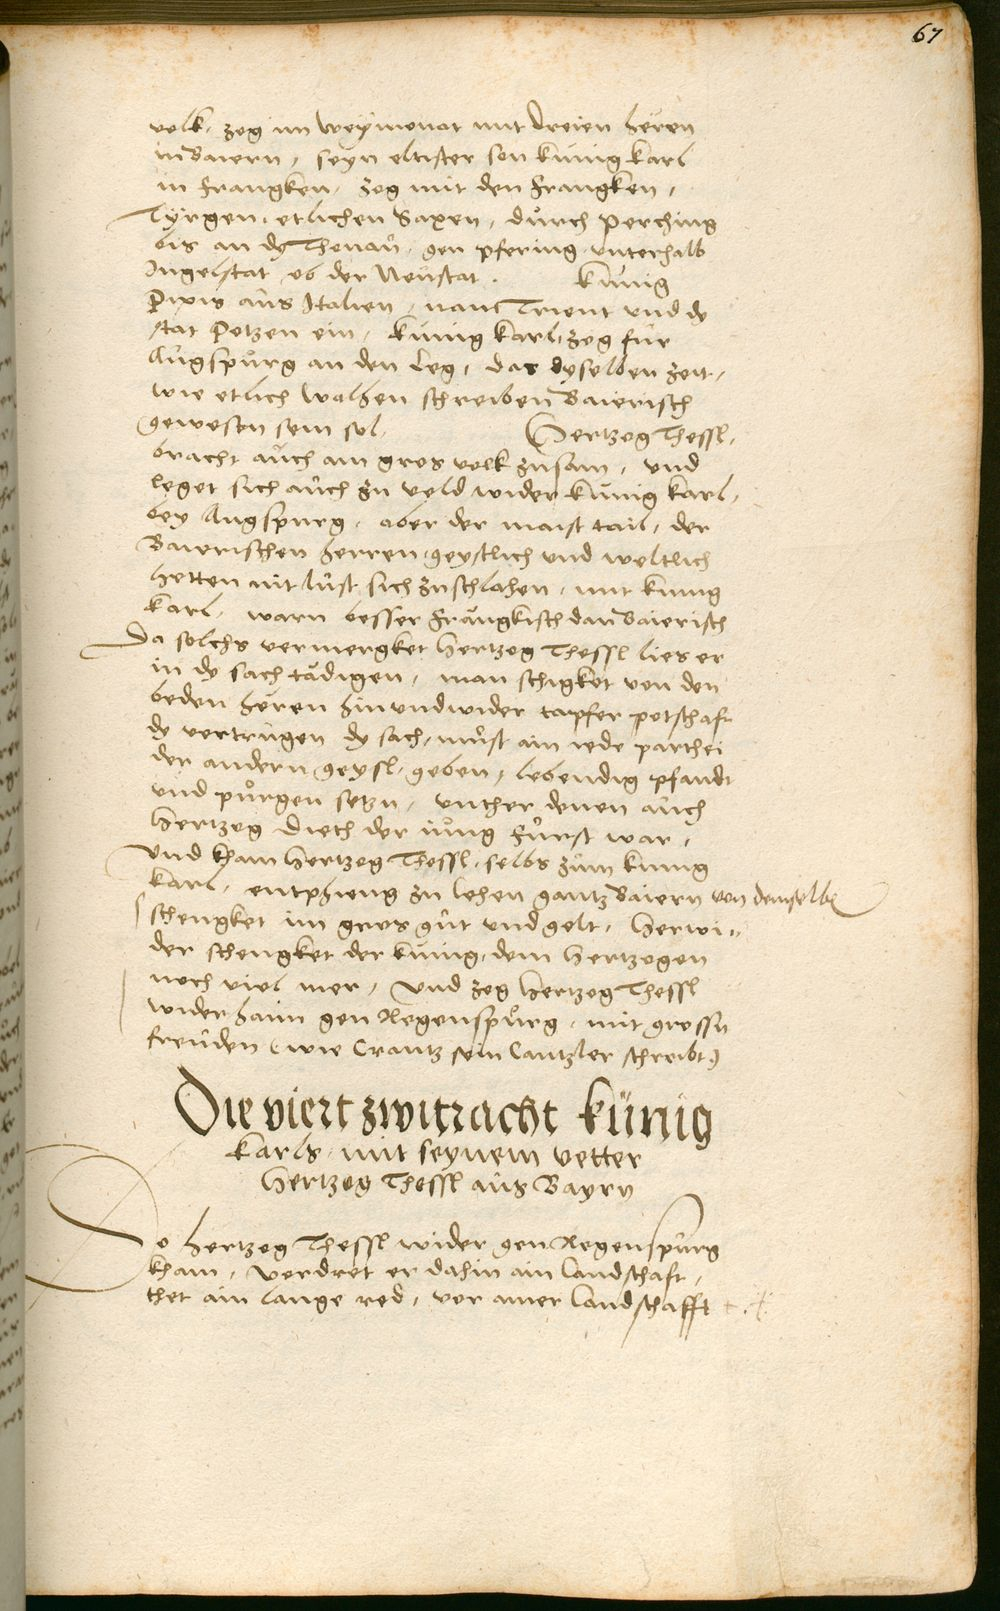 67
volk, zog im Weymonat mit dreien heren
in Baiern, seyn eltister son künig Karl
in Frangken, zog mit den Frangken,
Tyrgen, etlichen Saxen, durch Perching
bis an dy Thonau, gen Pfering unterhalb
Ingelstat ob der Neustat. Künig
Pipis aus Italien, nam Trient und de
stat Potzen ein, künig Karl zog für
Augspurg an den Leg, das dyselben zeit,
wie etlich Walhen schreiben Baierisch
gewesen sein sol. Hertzog Thessl,
bracht auch ain gros volk zusam, und
leget sich auch zu veld wider künig Karl,
bey Augspurg, aber der maist tail, der
Baierischen herren, geystlich und weltlich
hetten nit lust sich zuschlahen, mit kunig
Karl, warn besser Frangkisch dan Baierisch
Da solchs vermergket Hertzog Thessl lies er
in de sach tädigen, man schigket von den
beden heren hinundwider tapfer potschaft
de vertrugen dy sach, must ain iede parthei
der andern geysl, geben, lebendig pfandt
und purgen setzn, unther denen auch
Hertzog Dieth der iung Fürst war,
und kham Hertzog Thessl, selbs zum kunig
Karl, entphieng zu lehen gantz Baiern von demselben
schengket im gros gut und gelt, Herwi=
der schengket der kunig, dem Hertzogen
noch viel mer, und zog Hertzog Thessl
wider haim gen Regenspurg, mit grossn
freuden (wie Crantz sein Cantzler schreibt)
Die viert zwitracht künig
Karls, mit seynem vetter
Hertzog Thessl aus Bayrn
Do Hertzog Thessl wider gen Regenspurg
kham, vordret er dahin ain Landschaft,
thet ain lange red, vor ainer Landschafft